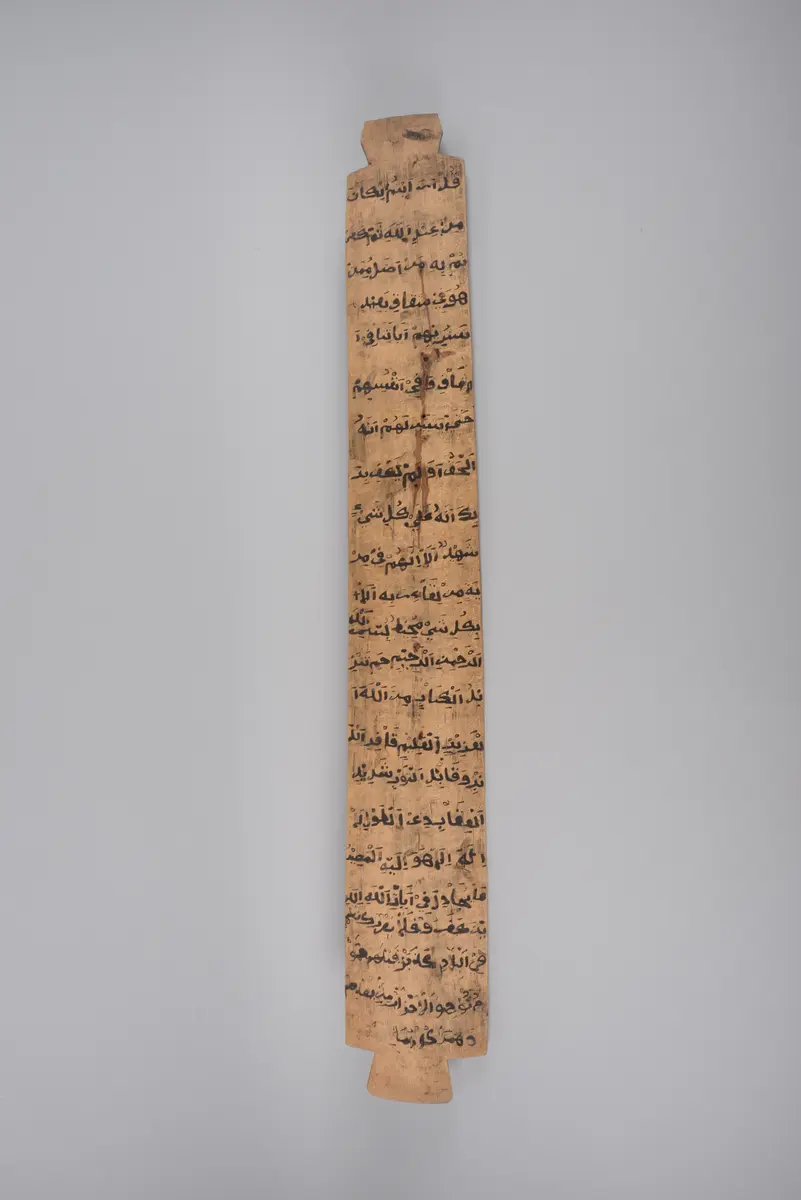 قل ارايتم ان كان
من عند الله ثم كفر
تم به من اضل ممن
هو في شقاق بعيد
سنريهم اياتنا في ا
لافاق وفي انفسهم
حتى يتبين لهم انه
الحق او لم يكف بر
بك انه على كل شيء
شهيد الا انهم في مر
ية من لقاء ربه الا
بكل شيء محيط بسم الله
الرحمن الرحيم حم تنز
يل الكتاب من الله ا
لعزيز العليم غافر الذ
نب وقابل التوب شديد
العقاب ذي الطول لا
اله الا هو اليه المصير
ما يجادل في ايات الله الا الذ
ين كفروا فلا يغررك تقلبهم
في البلاد كذبت قبلهم قو
م نوح والاحزاب من بعدهم
وهمت كل امة